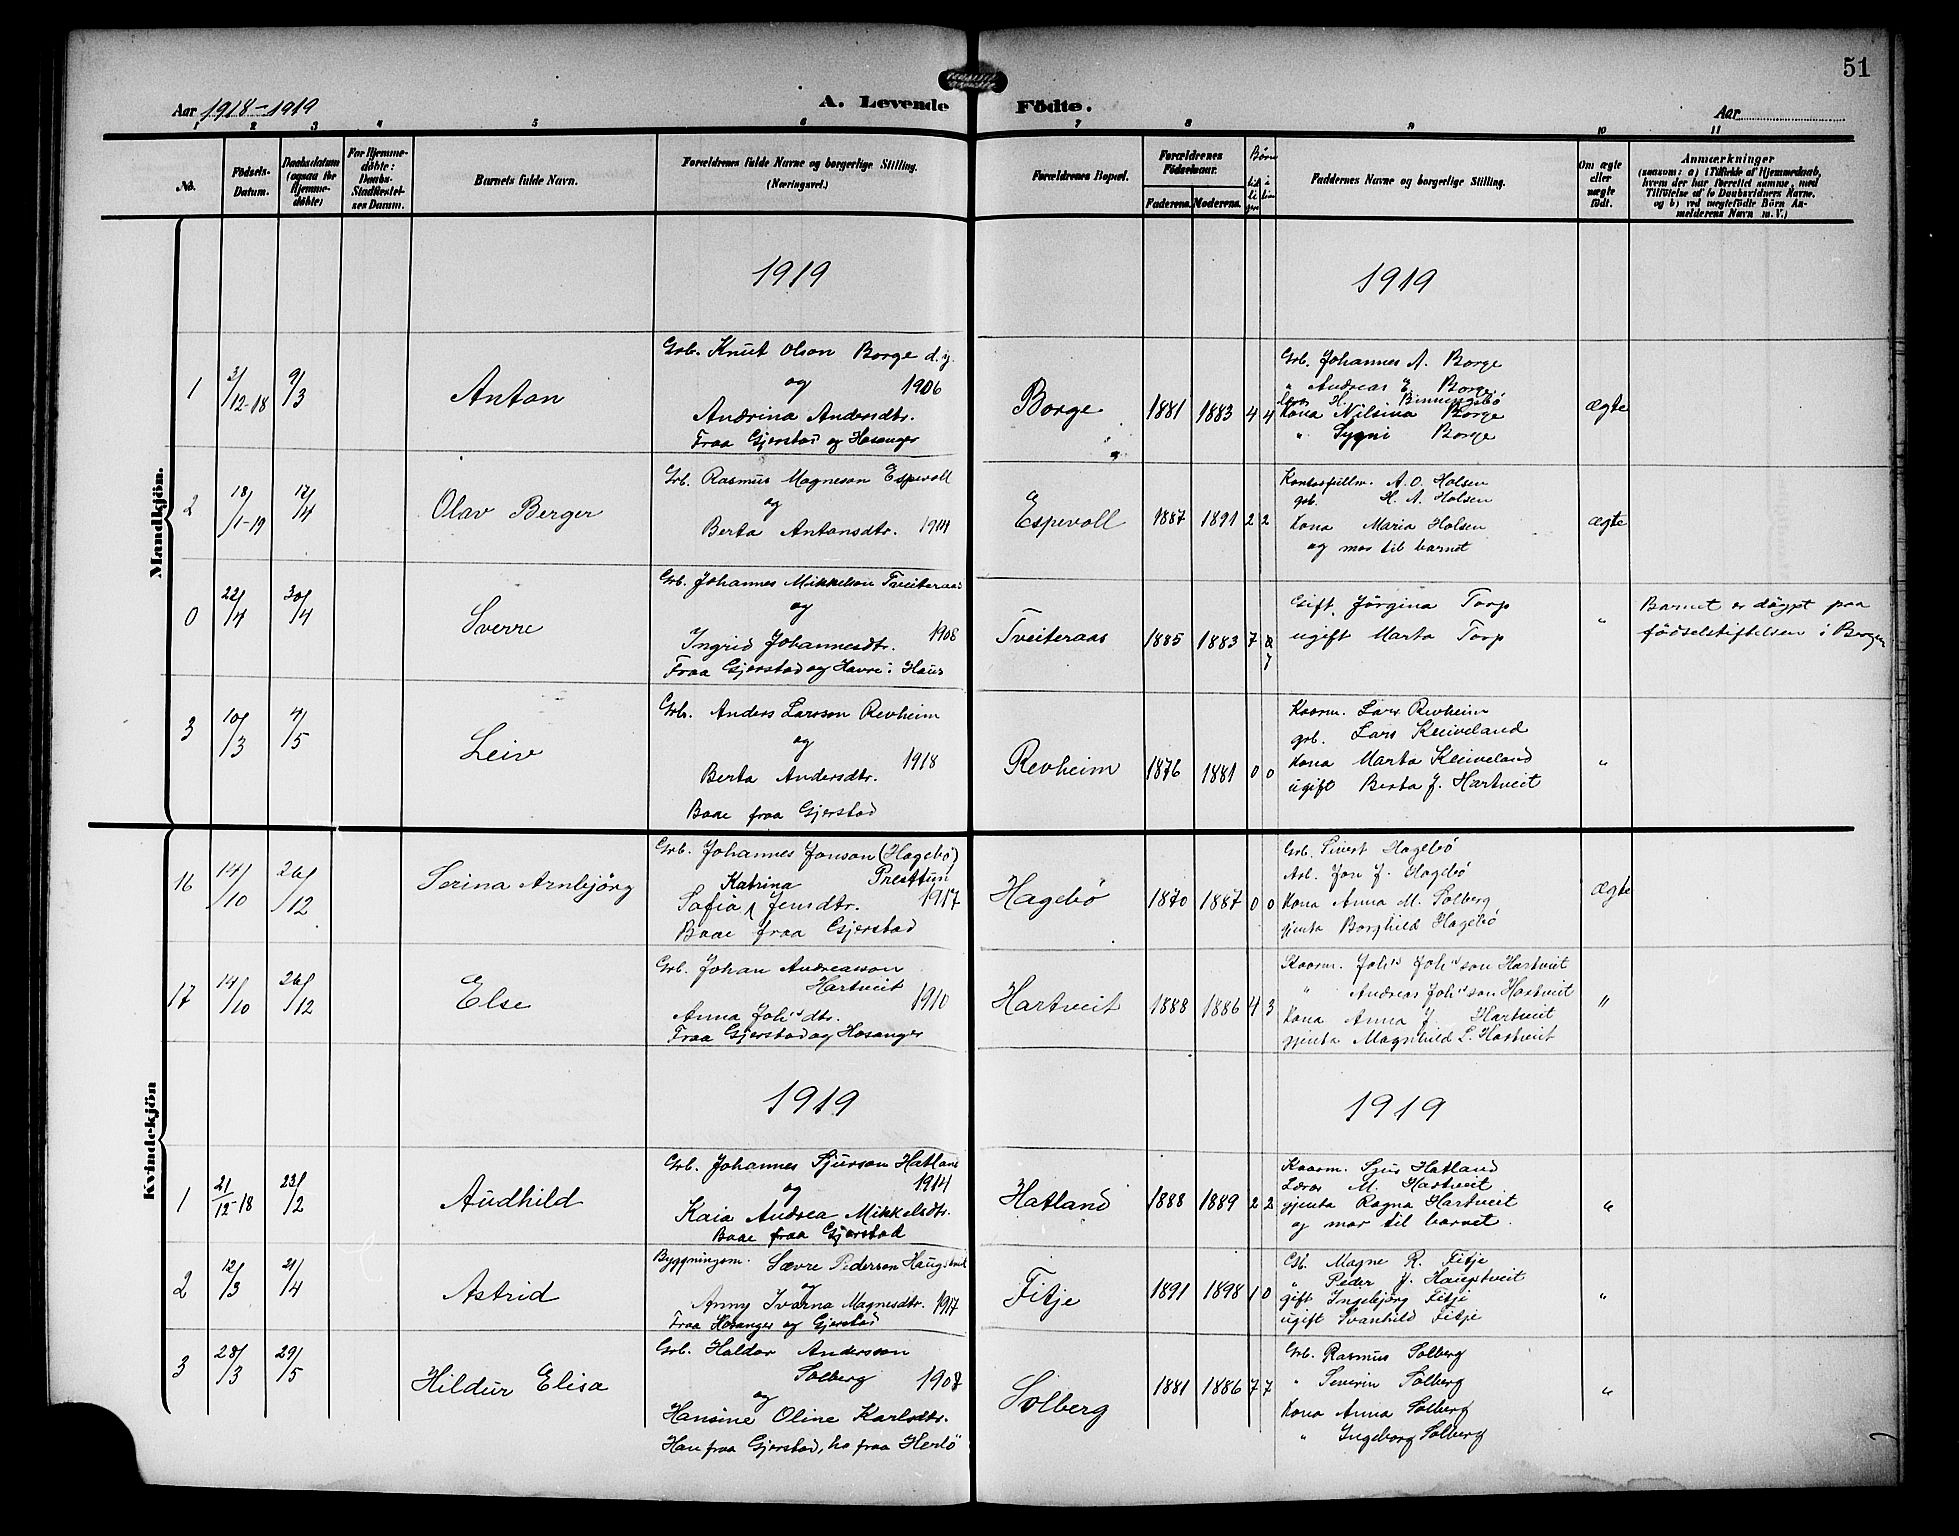 51
Aar 1918-1919
A. Levende Födte.
Aar
1 2 3 4 5 6 7 8 9 10 11
No.
Födsels-
Datum.
Daabsdatum
(ogsaa for
Hjemme-
döbte)
For Hjemme-
döbte:
Daabs-
Stadfæstel-
ses Datum.
Barnets fulde Navn.
Forældrenes fulde Navne og borgerlige Stilling.
(Næringsvei.)
Forældrenes Bopæl.
Forældrenes
Födselsaar.
Faderens. Moderens.
Børn
Faddernes Navne og borgerlige Stilling.
Om ægte
eller
uægte
födt.
Anmærkninger
(saasom: a) i Tilfælde af Hjemmedaab,
hvem der har forrettet samme, med
Tilföielse af to Daabsvidners Navne.
og b) ved uegtefödte Börn An-
melderens Navn m. V.)
Mandkjön.
1919
1919
1
3/12-18
9/3
Anton
Grb. Knut Olson Borge d.y.
og 1906
Andrina Andersdtr.
Fraa Gjerstad og Hosanger
Borge
1881 1883 4 4
Grb. Johannes A. Borge
" Andreas E. Borge
Lars H. Binningsbö
Kona Nilsina Borge
" Sygni Borge
ægte
2
18/1-19
17/4
Olav Berger
Grb. Rasmus Magneson Espevoll
og
Berta Antonsdtr. 1914
Espevoll
1887 1891 2 2
Kontorfullm. A. O. Holsen
grb. H. A. Holsen
Kona Maria Holsen
og mor til barnet
ægte
0
22/4
30/4
Sverre
Grb. Johannes Mikkelson Tveiteraas
og
Ingrid Johannesdtr. 1908
Fraa Gjerstad og Havre i Haus
Tveiteraas
1885 1883 7
7
Gift Jörgina Torp
ugift Marta Torp
"
Barnet er döypt paa
födselstiftelsen i Bergen
3
10/3
4/5
Leiv
Grb. Anders Larsson Revheim
og
Berta Andersdtr. 1918
Baae fraa Gjerstad
Revheim
1876 1881 0 0
Kaarm. Lars Revheim
grb. Lars Kleiveland
Kona Marta Kleiveland
ugift Berta J. Hartveit
"
Kvindekjön
16
14/10
26/12
Serina Arnbjörg
Grb. Johannes Jonson (Hagebö)
Katrina Prestun
Sofia Jensdtr. 1917
Baae fraa Gjerstad
Hagebö
1870 1887 0 0
Grb. Sivert Hagebö
Arb. Jon J. Hagebö
Kona Anna M. Solberg
gjenta Borghild Hagebö
ægte
17
14/10
26/12
Else
Grb. Johan Andreasson
Hartveit 1910
Anna Joh's dtr.
Fraa Gjerstad og Hosanger
Hartveit
1888 1886 4 3
Kaarm. Joh's Joh's son Hartveit
" Andreas Joh's son Hartveit
Kona Anna J. Hartveit
gjenta Magnhild L. Hartveit
"
1919
1919
1
21/12-18
23/2
Audhild
Grb. Johannes Sjurson Hatland
og 1914
Kaia Andrea Mikkelsdtr.
Baae fraa Gjerstad
Hatland
1888 1889 2 2
Kaarm. Sjur Hatland
Lærar M. Hartveit
gjenta Ragna Hartveit
og mor til barnet.
"
2
12/3
21/4
Astrid
Byggningsm. Sævre Pederson Haugstveit
og
Anny Ivarna Magnesdtr. 1917
Fraa Hosanger og Gjerstad
Fitje
1891 1898 1 0
Grb. Magne R. Fitje
" Peder J. Haugstveit
gift Ingebjörg Fitje
ugift Svanhild Fitje
"
3
28/3
29/5
Hildur Elisa
Grb. Haldor Andersson
Solberg 1908
og
Hansine Oline Karlsdtr.
Han fraa Gjerstad, ho fraa Herlö
Solberg
1881 1886 7 7
Grb. Rasmus Solberg
" Severin Solberg
Kona Anna Solberg
" Ingeborg Solberg
"